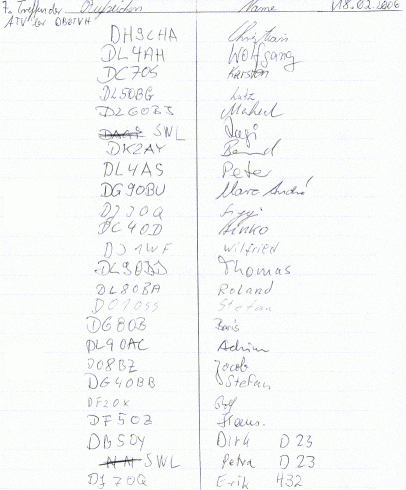 7. Treffen der Rufzeichen Name 18.02.2006
ATV DB0TVH
DH9CHA Christian
DL4AH Wolfgang
DC7OS Karsten
DL5OBG Lutz
DL6OBS Michael
SWL
DK2AY Bernd
DL4AS Peter
DG9OBU Marc André
DJ3OQ
DC4OD Heiko
DJ1WF Wilfried
DL9OBD Thomas
DL8OBA Roland
DO1OSS Stefan
DG8OB Boris
DL9OAC Adrian
DO8BZ Jacob
DG4OBB Stefan
DF2OX Rolf
DF5OZ Hans
DB5OY Dirk D23
SWL Petra D23
DJ7OQ Erik H32